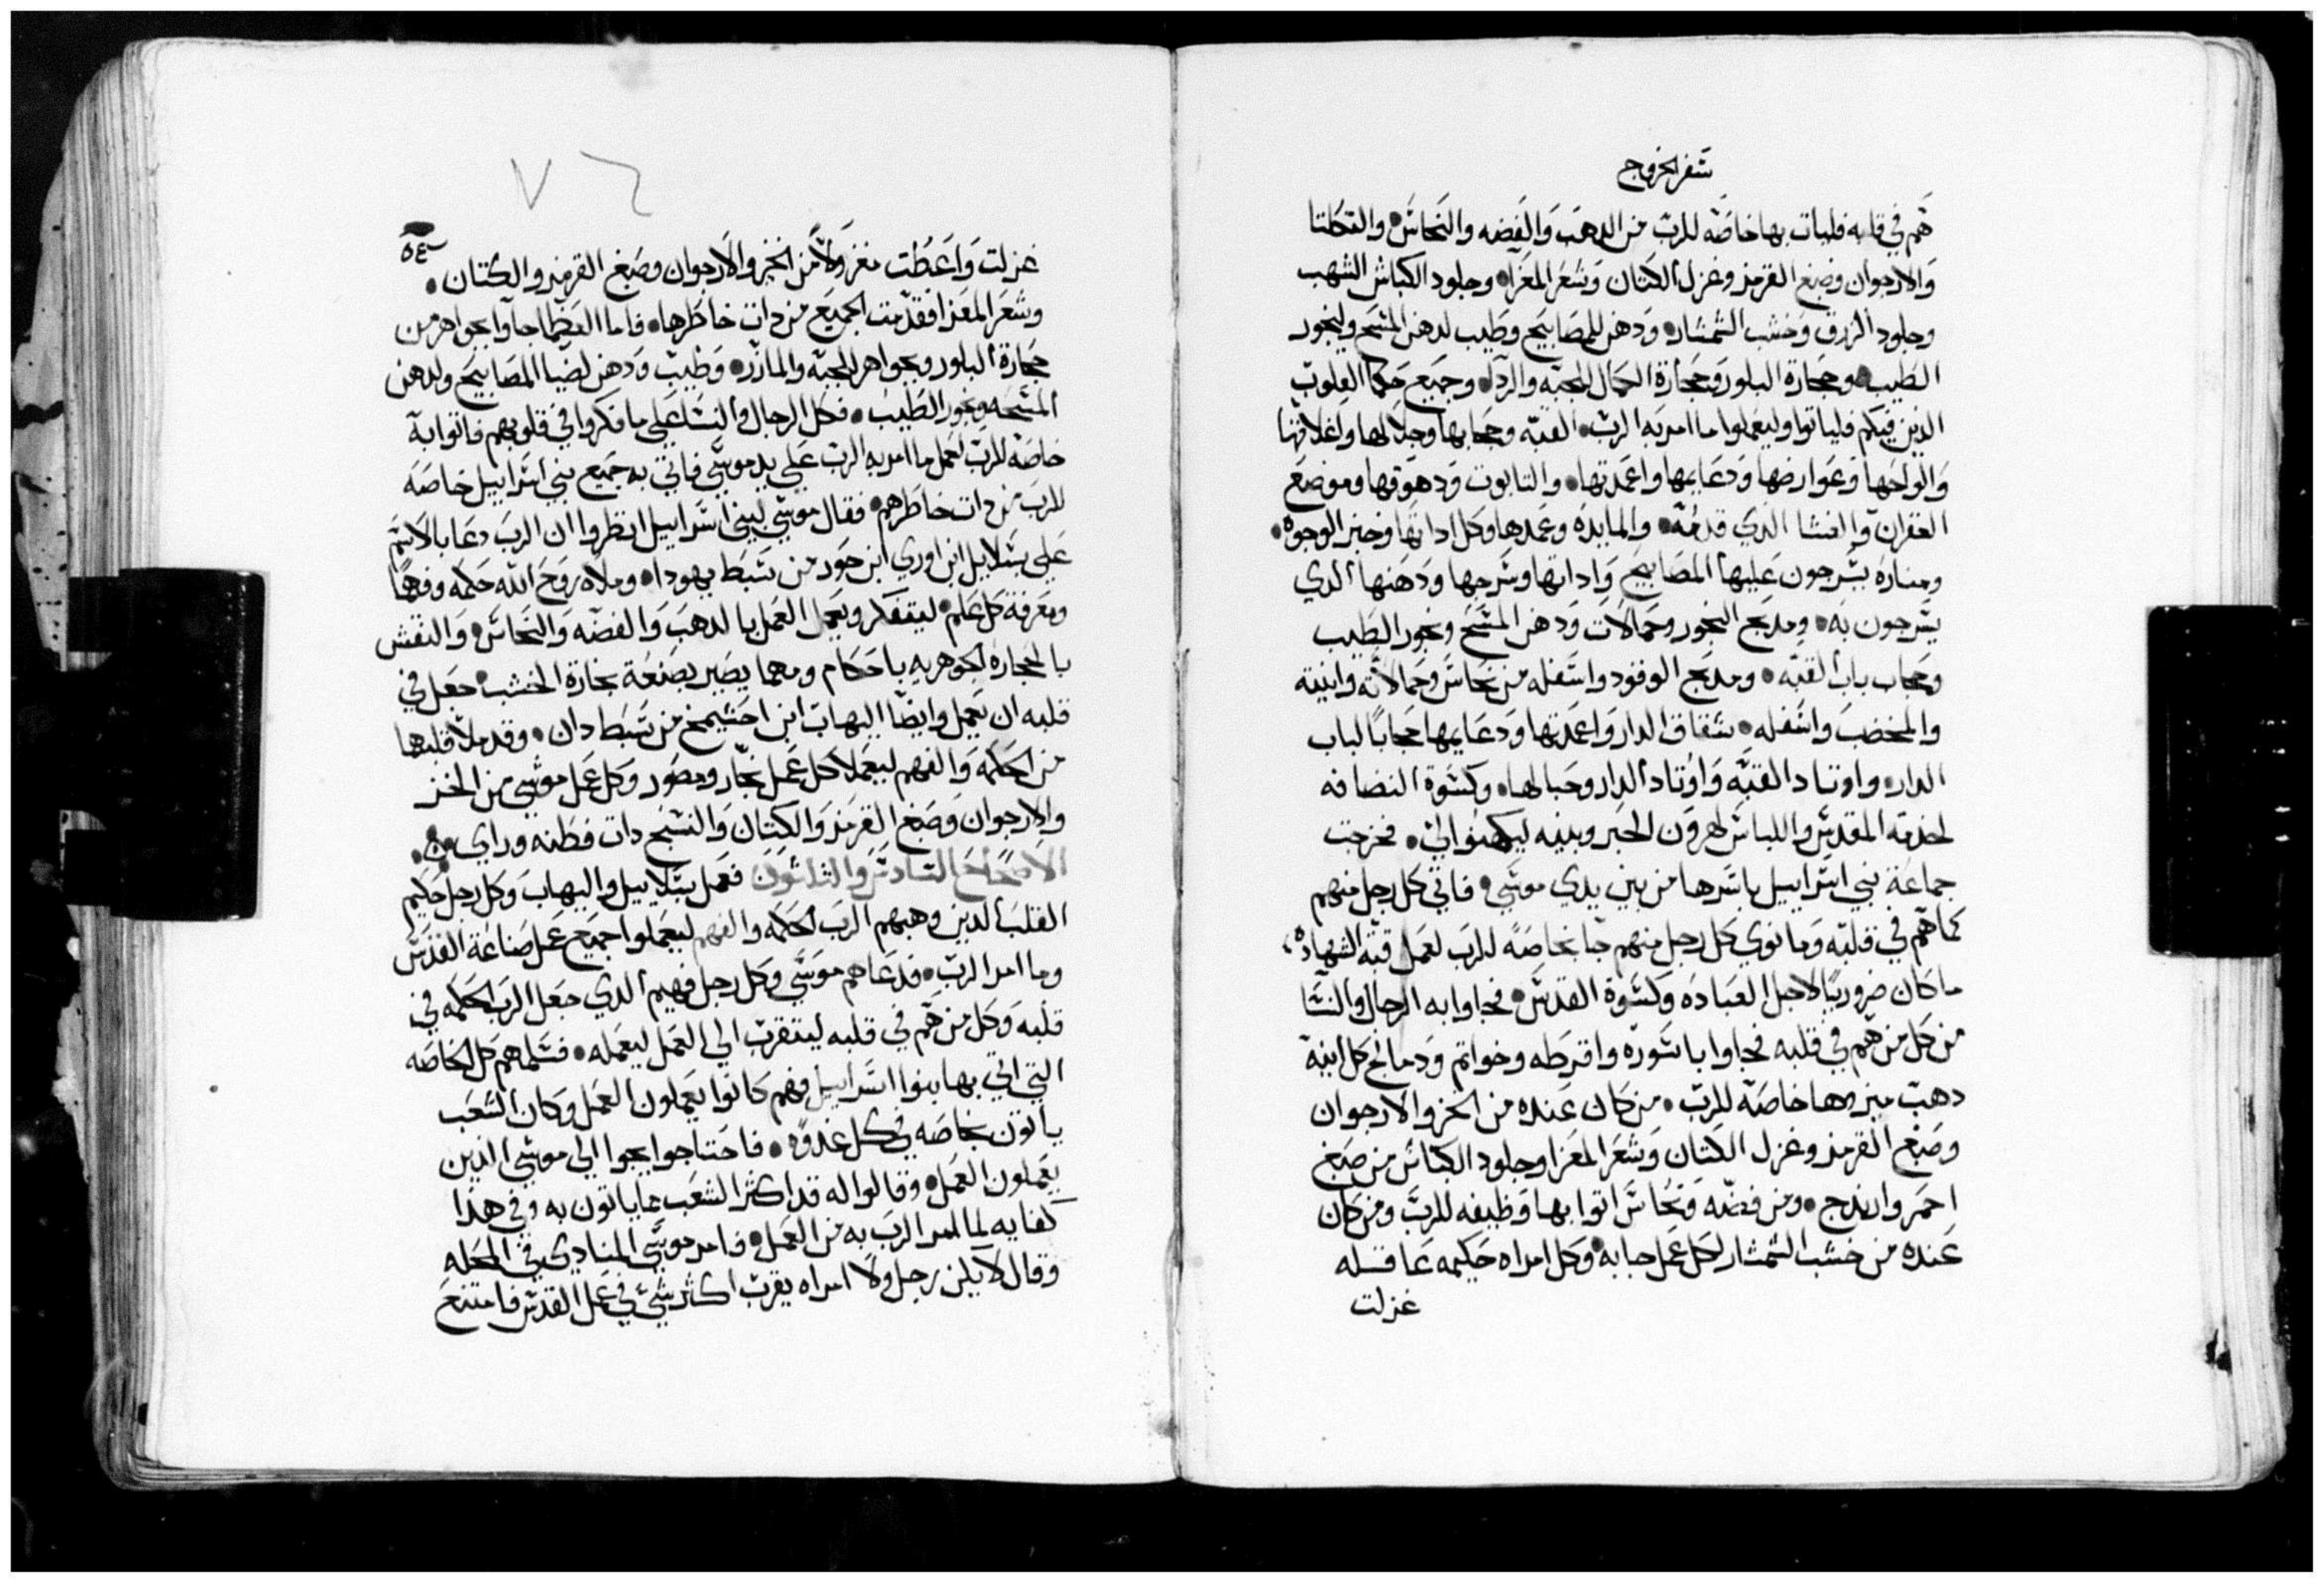 سفر الخروج
هم في قلبه فليات بها خاصه للرب من الدهب والفضه والنحاس والتكلتا
والارجوان وصبغ القرمز وغزل الكتان وشعر المعزا وجلود الكباش الشهب
وجلود الزرق وخشب الشمشار ودهن للمصابيح وطيب لدهن المسح ولبخور
الطيب وحجارة البلور وحجارة الكمال للجبه والردا وجميع حكما القلوب
الدين فيكم فلياتوا وليعملوا ما امر به الرب القبه وحجابها وجلالها واغلاقها
والواحها وعوارضها ودعايمها واعمدتها والتابوت ودهوقها وموضع
الغفران والغشا الدي قدامه والمايده وعمدها وكل اداتها وخبز الوجوه
ومناره يسرجون عليها المصابيح واداتها وسرجها ودهنها الدي
يسرجون به ومدبح البخور وحمالات ودهن المسح وبخور الطيب
وحجاب باب القبه ومدبح الوقود واسفله من نحاس وحمالاته وانيته
والمخضب واسفله شقاق الدار واعمدتها ودعايمها حجابا لباب
الدار واوتاد القبه واوتاد الدار وحبالها وكسوة النضافه
لخدمه المقدس واللباس لهرون الحبر وبنيه ليكهنوا لي فخرجت
جماعة بني اسراييل باسرها من بين يدي موسي فاتي كل رجل منهم
كما هم في قلبه وما نوي كل رجل منهم جا بخاصه للرب لعمل قبة الشهاده
ما كان ضروريا لاجل العباده وكسوة القدس فجاوا به الرجال والنسا
من كل من هم في قلبه فجاوا باسوره واقرطه وخواتم ودمالج كل انية
دهب ميزوها خاصه للرب من كان عنده من الخز والارجوان
وصبغ القرمز وغزل الكتان وشعر المعزا وجلود الكباش من صبغ
احمر وارندج ومن فضه ونحاس اتوا بها وظيفه للرب ومن كان
عنده من خشب الشمشار لكل عمل جا به وكل امراه حكيمه عاقله
غزلت
٥٤
٧٦
غزلت واعطت مغزولا من الخز والارجوان وصبغ القرمز والكتان
وشعر المعزا فقدمت الجميع من دات خاطرها فاما العظما جاوا بجواهر من
حجارة البلور وبجواهر للجبه والمازر وطيب ودهن لضيا المصابيح ولدهن
المسحه وبخور الطيب فكل الرجال والنسا علي ما فكروا في قلوبهم فاتوا به
خاصه للرب لعمل ما امر به الرب علي يد موسي فاتي به جميع بني اسراييل خاصه
للرب من دات خاطرهم فقال موسي لبني اسراييل انظروا ان الرب دعا بالاسم
علي بسلاييل ابن اوري ابن حور من سبط يهودا وملاه روح الله حكمه وفهما
ومعرفة كل علم ليتفكر ويعمل العمل بالدهب والفضه والنحاس والنقش
بالحجاره الجوهريه باحكام ومهما يصير بصنعة نجارة الخشب جعل في
قلبه ان يعمل وايضا اليهاب ابن احسيمخ من سبط دان وقد ملا قلبها
من الحكمه والفهم ليعملا كل عمل نجار ومصور وكل عمل موشي من الخز
والارجوان وصبغ القرمز والكتان والنسج دات فطنه وراي
الاصحاح السادس والثلثون فعمل بسلاييل واليهاب وكل رجل حكيم
القلب الدين وهبهم الرب الحكمه والفهم ليعملوا جميع عمل صناعة القدس
وما امر الرب فدعاهم موسي وكل رجل فهيم الدي جعل الرب الحكمه في
قلبه وكل من هم في قلبه ليتقرب الي العمل ليعمله فسلمهم كل الخاصه
التي اتي بها بنوا اسراييل فهم كانوا يعملون العمل وكان الشعب
ياتون بخاصه في كل غدوه فاحتاجوا يجوا الي موسي الدين
يعملون العمل وقالوا له قد اكثر الشعب مما ياتون به وفي هذا
كفايه لما امر الرب به من العمل فامر موسي المنادي في المحله
وقال لا يكن رجل ولا امراه يقرب اكثر شي في عمل القدس فامتنع